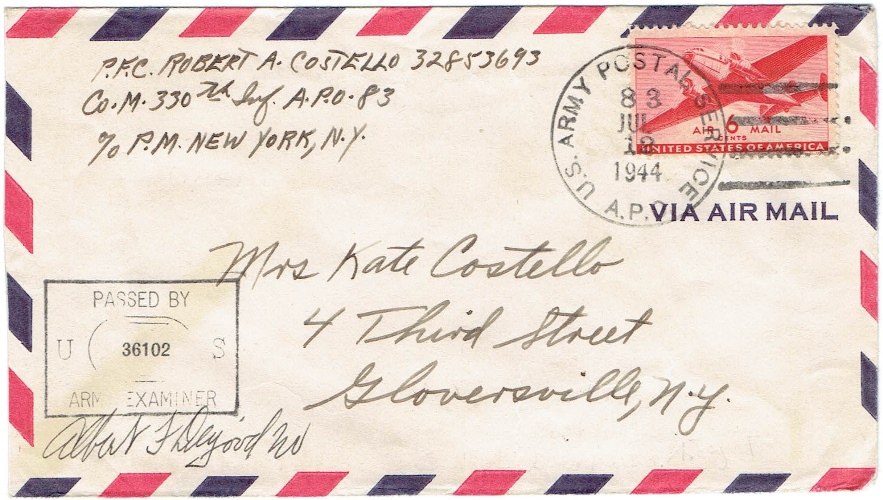 P.F.C. ROBERT A. COSTELLO 32853693
CO. M. 330TH Inf. A.P.O. 83
c/o P.M. NEW YORK, N.Y.
U.S. ARMY POSTAL SERVICE
A.P.O.
83
JUL
1944
AIR 6 MAIL
CENTS
UNITED STATES OF AMERICA
VIA AIR MAIL
Mrs Kate Costello
4 Third Street
Gloversville, N.Y.
PASSED BY
U 36102 S
ARMY EXAMINER
Albert F